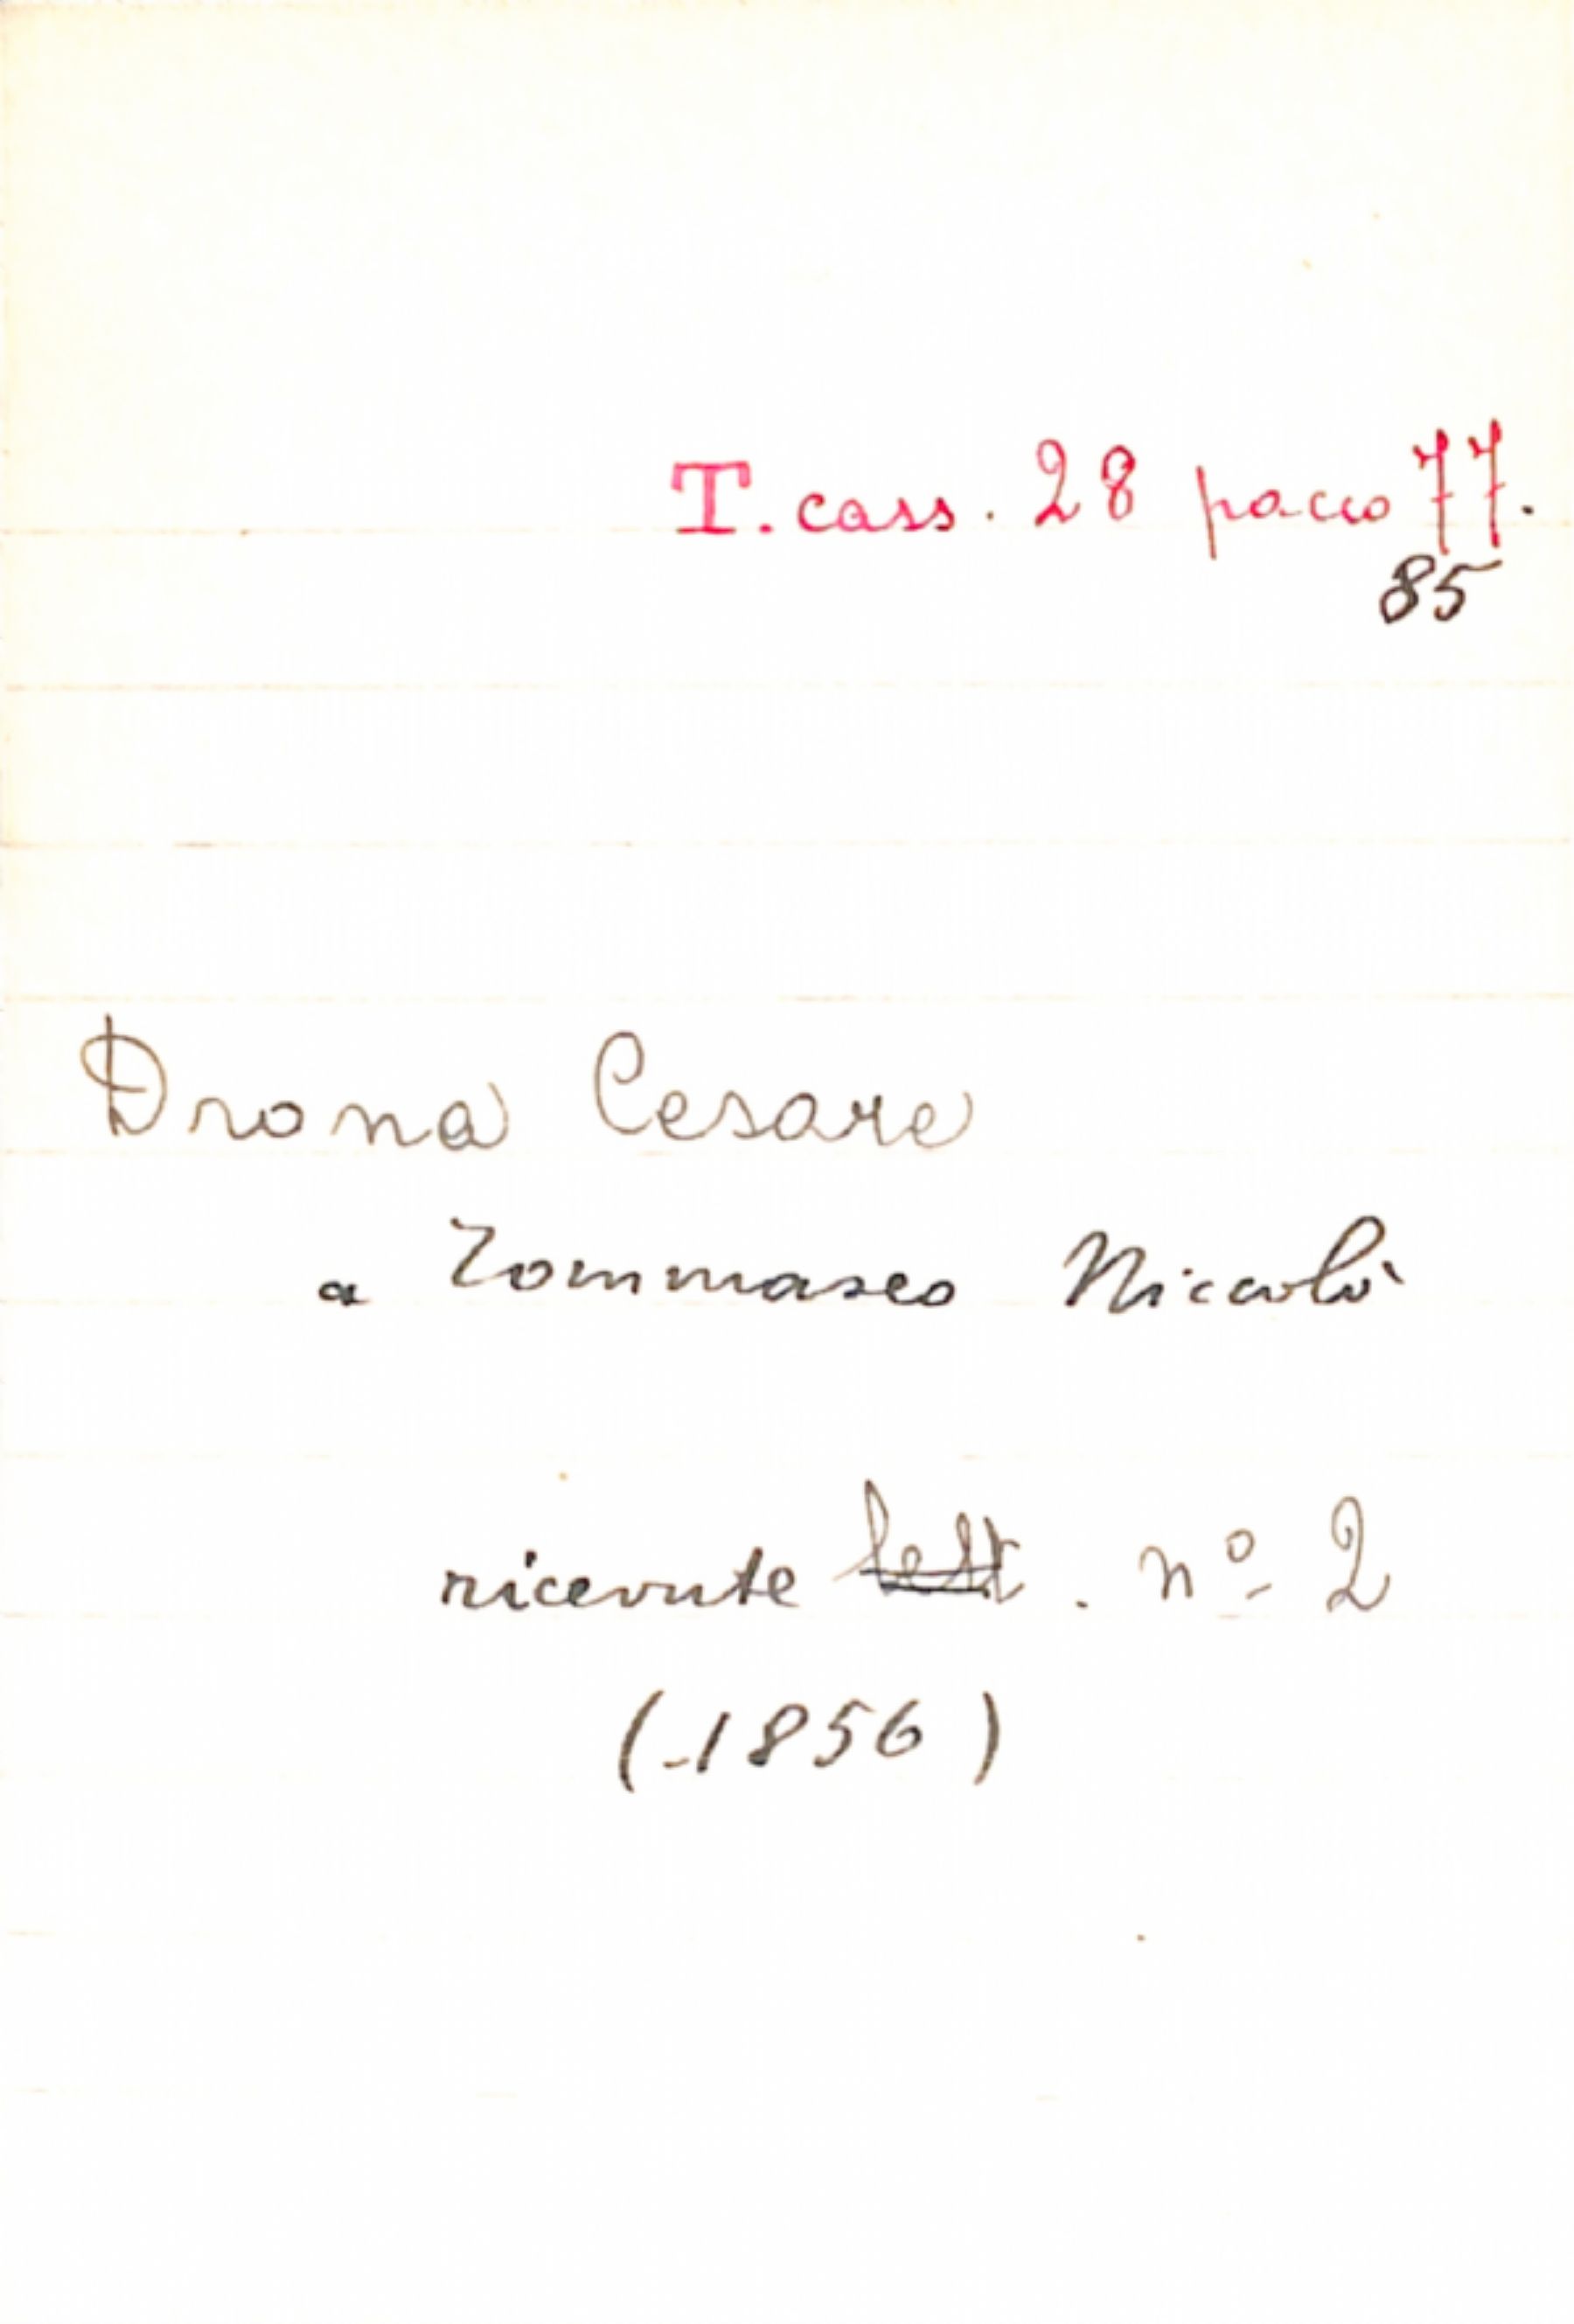 T. cass. 28 pacco 77.
85
Drona Cesare
a Tommaseo Niccolò
ricevute lett. nº 2
(-1856)